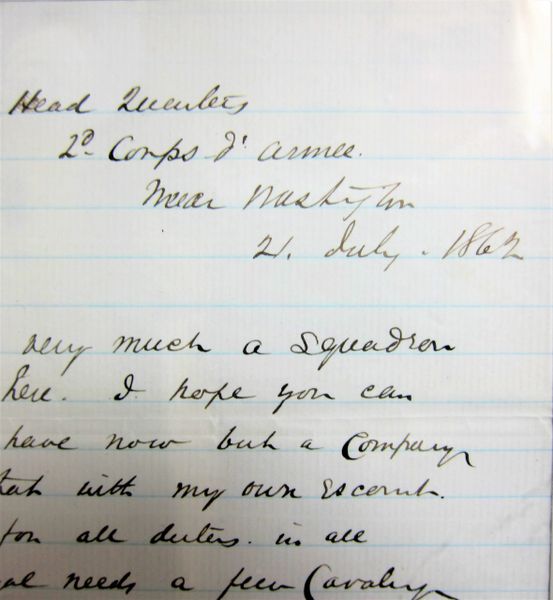 Head Quarters
2d Corps d' armee.
Near Washington
21. July. 1862
very much a Squadron
here. I hope you can
have now but a Company
with my own Escort.
for all duties. in all
needs a few Cavalry